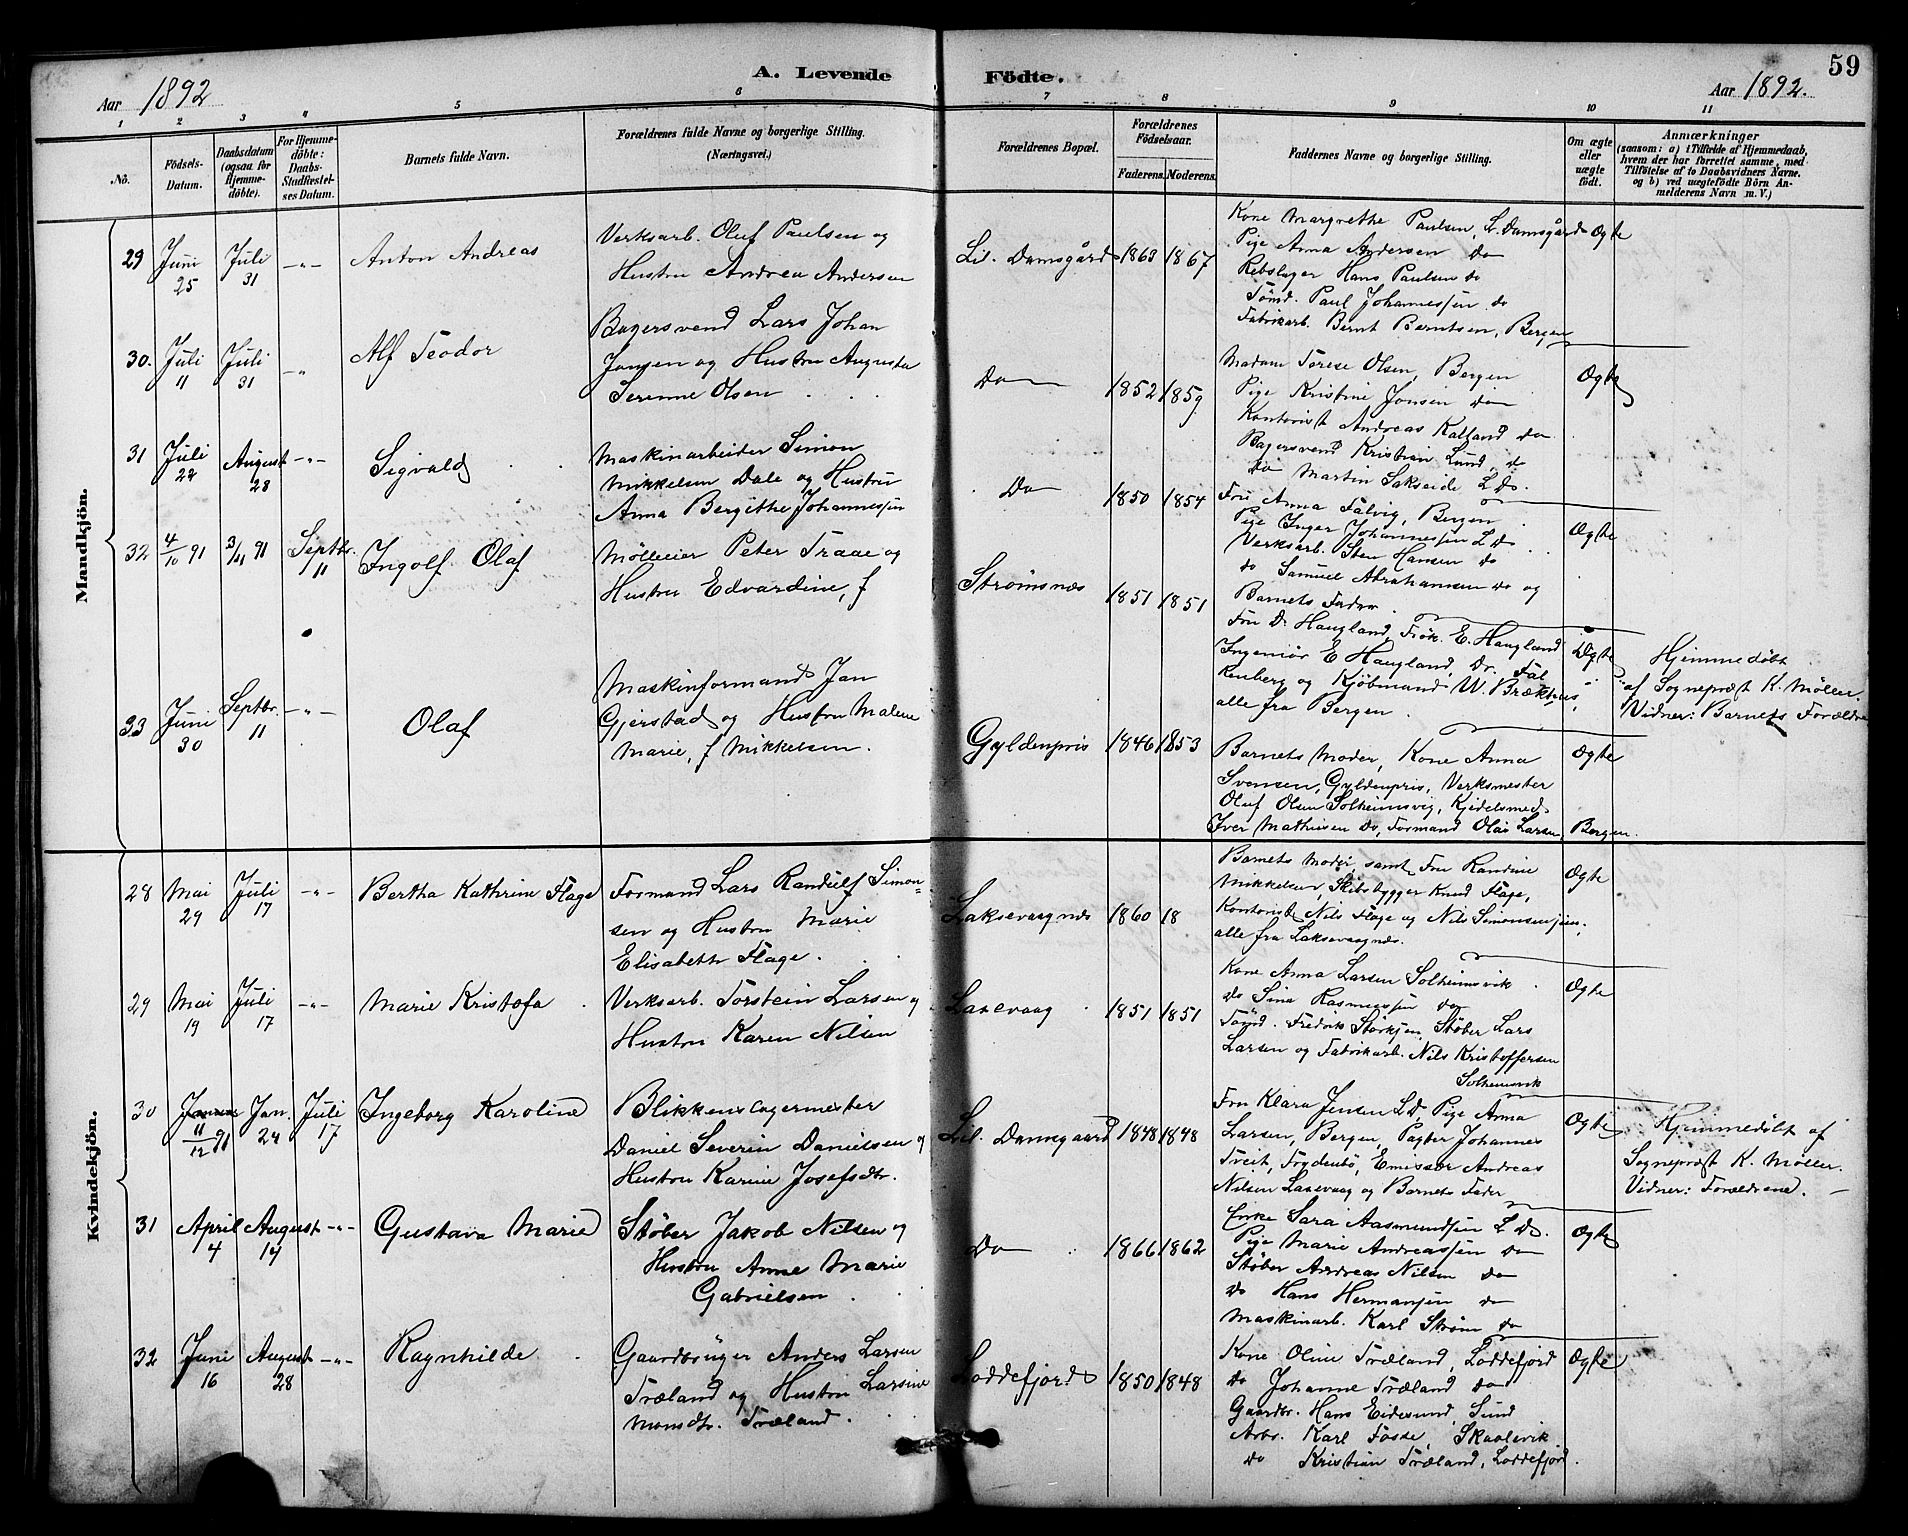 A. Levende Födte.
59
Aar 1892
Aar 1892.
1 2 3 4 5 6 7 8 9 10 11
No.
Födsels-Datum.
Daabsdatum (ogsaa for Hjemmedöbte).
For Hjemmedöbte: Daabs-Stadfæstelses Datum.
Barnets fulde Navn.
Forældrenes fulde Navne og borgerlige Stilling.
(Næringsvei.)
Forældrenes Bopæl.
Forældrenes Födselsaar.
Faderens. Moderens.
Faddernes Navne og borgerlige Stilling.
Om ægte eller uægte födt.
Anmærkninger
(saasom: a) i Tilfælde af Hjemmedaab,
hvem der har forrettet samme, med
Tilföielse af to Daabsvidners Navne.
og b) ved uægtefödte Börn An-
melderens Navn m. V.)
Mandkjön.
29 Juni 25 Juli 31 -"- Anton Andreas
Verksarb. Oluf Paulsen og
Hustru Andrea Andersen
Lil. Damsgård 1863 1867
Kone Margrethe Paulsen, L. Damsgård
Pige Anna Andersen do
Rebslager Hans Paulsen do
Tömd. Paul Johannessen do
Fabrikarb. Bernt Berntsen, Bergen
Ægte
30. Juli 11 Juli 31 -"- Alf Teodor
Bagersvend Lars Johan
Jansen og Hustru Augusta
Serenne Olsen
Do 1852 1859
Madam Terese Olsen, Bergen
Pige Kristine Jansen do
Kontorist Andreas Kalland do
Bagersvend Kristian Lund, do
do Martin Lakseide L. D.
Ægte
31 Juli 22 August 28 -"- Sigvald
Maskinarbeider Simon
Mikkelsen Dale og Hustru
Anna Bergithe Johannessen
Do 1850 1854
Fru Anna Falvig, Bergen
Pige Inger Johannessen L. D.
Verksarb. Sten Hansen do
do Samuel Abrahamsen do og
Barnets Fader
Ægte
32 4/10 91 3/11 91 Septbr. 11 Ingolf Olaf
Mölleeier Peter Traae og
Hustru Edvardine, f
Strömsnæs 1851 1851
Fru D. Haugland, Frök. E. Haugland
Ingeniör E Haugland, Dr. Fal
kenberg og Kjöbmand W. Brækhus,
alle fra Bergen.
Ægte
Hjemmedöbt
af Sognepræst K. Möller.
Vidner: Barnets Forældre
33 Juni 30 Septbr. 11 -"- Olaf
Maskinformand Jan
Gjerstad og Hustru Malene
Marie, f Mikkelsen.
Gyldenpris 1846 1853
Barnets Moder, Kone Anna
Svensen, Gyldenpris, Verksmester
Oluf Olsen Solheimsvig, Kjedelsmed
Iver Mathisen do, Formand Olai Larsen, Bergen.
Ægte
Kvindekjön.
28 Mai 29 Juli 17 -"- Bertha Kathrine Flage
Formand Lars Randulf Simon-
sen og Hustru Marie
Elisabeth Flage.
Laksevaagnæs 1860 18
Barnets Moder samt Fru Randine
Mikkelsen, Skibsbygger Knud Flage,
Kontorist Nils Flage og Nils Simonsen jun.
alle fra Laksevaagnæs.
Ægte
29 Mai 19 Juli 17 -"- Marie Kristofa
Verksarb. Torstein Larsen og
Hustru Karen Nilsen
Laxevaag 1851 1851
Kone Anna Larsen Solheimsvik
do Sina Rasmussen do
Tömd. Fredrik Störksen, Stöber Lars
Larsen og Fabrikarb. Nils Kristoffersen
Solheimsvik
Ægte
30 Januar 11/12 91 Jan. 24 Juli 17 Ingeborg Karoline
Blikkenslagermester
Daniel Severin Danielsen og
Hustru Karine Josefsdtr.
Lil. Damsgaard 1848 1848
Fru Klara Jensen L. D, Pige Anna
Larsen, Bergen, Pagter Johannes
Treit, Frydenbö, Emissær Andreas
Nilsen Laxevaag og Barnets Fader
Ægte
Hjemmedöbt af
Sognepræst K. Möller.
Vidner: Forældrene.
31 April 4 August 14 -"- Gustava Marie
Stöber Jakob Nilsen og
Hustru Anne Marie
Gabrielsen
Do 1866 1862
Enke Sara Aasmundsen L. D.
Pige Marie Andreassen do
Stöber Andreas Nilsen do
do Hans Hermansen do
Maskinarb. Karl Ström do
Ægte
32 Juni 16 August 28 -"- Ragnhilde
Gaardbruger Anders Larsen
Træland og Hustru Larsine
Monsdtr. Træland.
Loddefjord 1850 1848
Kone Oline Træland, Loddefjord
do Johanne Træland do
Gaardbr. Hans Eidesund, Sund
Arb. Karl Fosse, Skaalevik
do Kristian Træland, Loddefjord.
Ægte